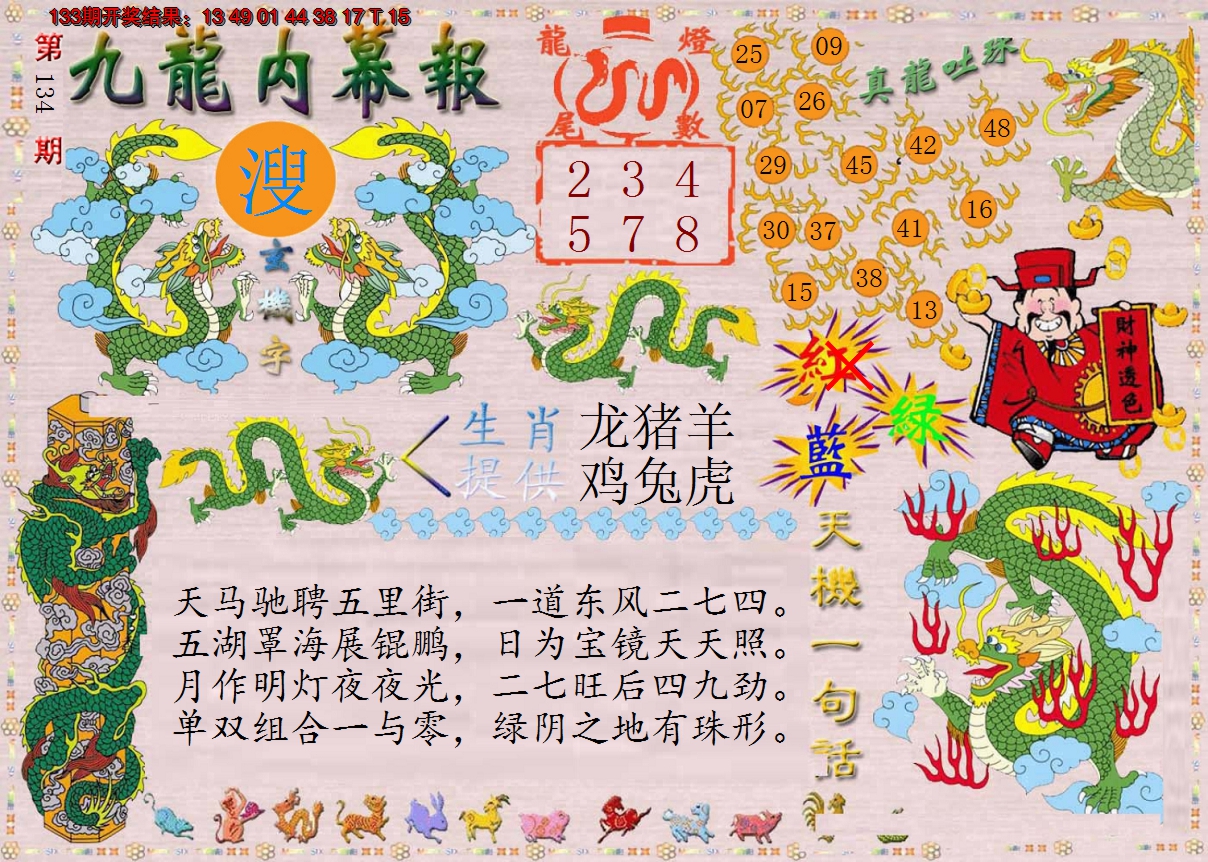 133期开奖结果：13 49 01 44 38 17 T 15
第134期
九龍内幕報
溲
玄機字
龍燈尾數
2 3 4
5 7 8
真龍吐珠
25 09
07 26
29 45 42 48
30 37 41 16
15 38 13
紅
綠
藍
財神透色
生肖 龙猪羊
提供 鸡兔虎
天马驰聘五里街，一道东风二七四。
五湖罩海展锟鹏，日为宝镜天天照。
月作明灯夜夜光，二七旺后四九劲。
单双组合一与零，绿阴之地有珠形。
天機一句话